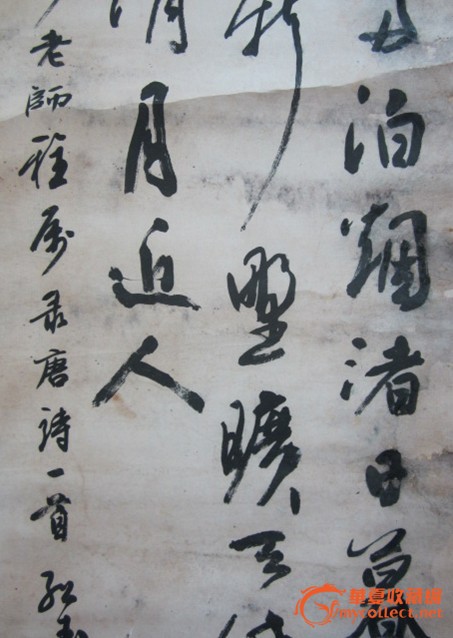 舟泊烟渚日暮
新野曠天低
清月近人
老師雅属录唐詩一首
華夏收藏網